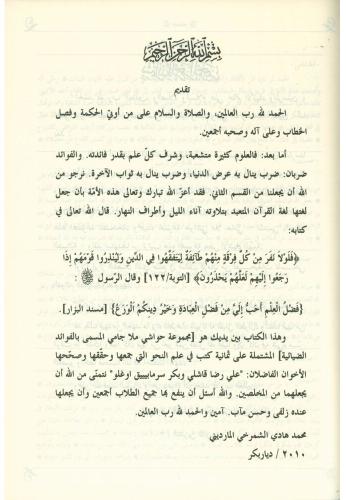 بسم الله الرحمن الرحيم
تقديم
الحمد لله رب العالمين، والصلاة والسلام على من أوتي الحكمة وفصل
الخطاب وعلى آله وصحبه أجمعين.
أما بعد: فالعلوم كثيرة متشعبة، وشرف كلّ علم بقدر فائدته. والفوائد
ضربان: ضرب ينال به عرض الدنيا، وضرب ينال به ثواب الآخرة. نرجو من
الله أن يجعلنا من القسم الثاني. فقد أعزّ الله تبارك وتعالى هذه الأمّة بأن جعل
لغتها لغة القرآن المتعبد بتلاوته آناء الليل وأطراف النهار. قال الله تعالى في
كتابه:
﴿فَلَوْلَا نَفَرَ مِنْ كُلِّ فِرْقَةٍ مِنْهُمْ طَائِفَةٌ لِيَتَفَقَّهُوا فِي الدِّينِ وَلِيُنْذِرُوا قَوْمَهُمْ إِذَا
رَجَعُوا إِلَيْهِمْ لَعَلَّهُمْ يَحْذَرُونَ﴾ [التوبة/١٢٢] وقال الرّسول ﷺ:
{فَضْلُ الْعِلْمِ أَحَبُّ إِلَيَّ مِنْ فَضْلِ الْعِبَادَةِ وَخَيْرُ دِينِكُمُ الْوَرَعُ} [مسند البزار].
وهذا الكتاب بين يديك هو [مجموعة حواشي ملا جامي المسمى بالفوائد
الضيائية] المشتملة على ثمانية كتب في علم النحو التي جمعها وحقّقها وصحّحها
الأخوان الفاضلان: "علي رضا قاشلي وبكر سرمايبيق اوغلو" نتمنّى من الله أن
يجعلهما من المخلصين. والله أسئل أن ينفع بها جميع الطلاب أجمعين وأن يجعلها
عنده زلفى وحسن مآب. آمين والحمد لله رب العالمين.
محمد هادي الشمرخي المارديني
٢٠١٠ / دياربكر